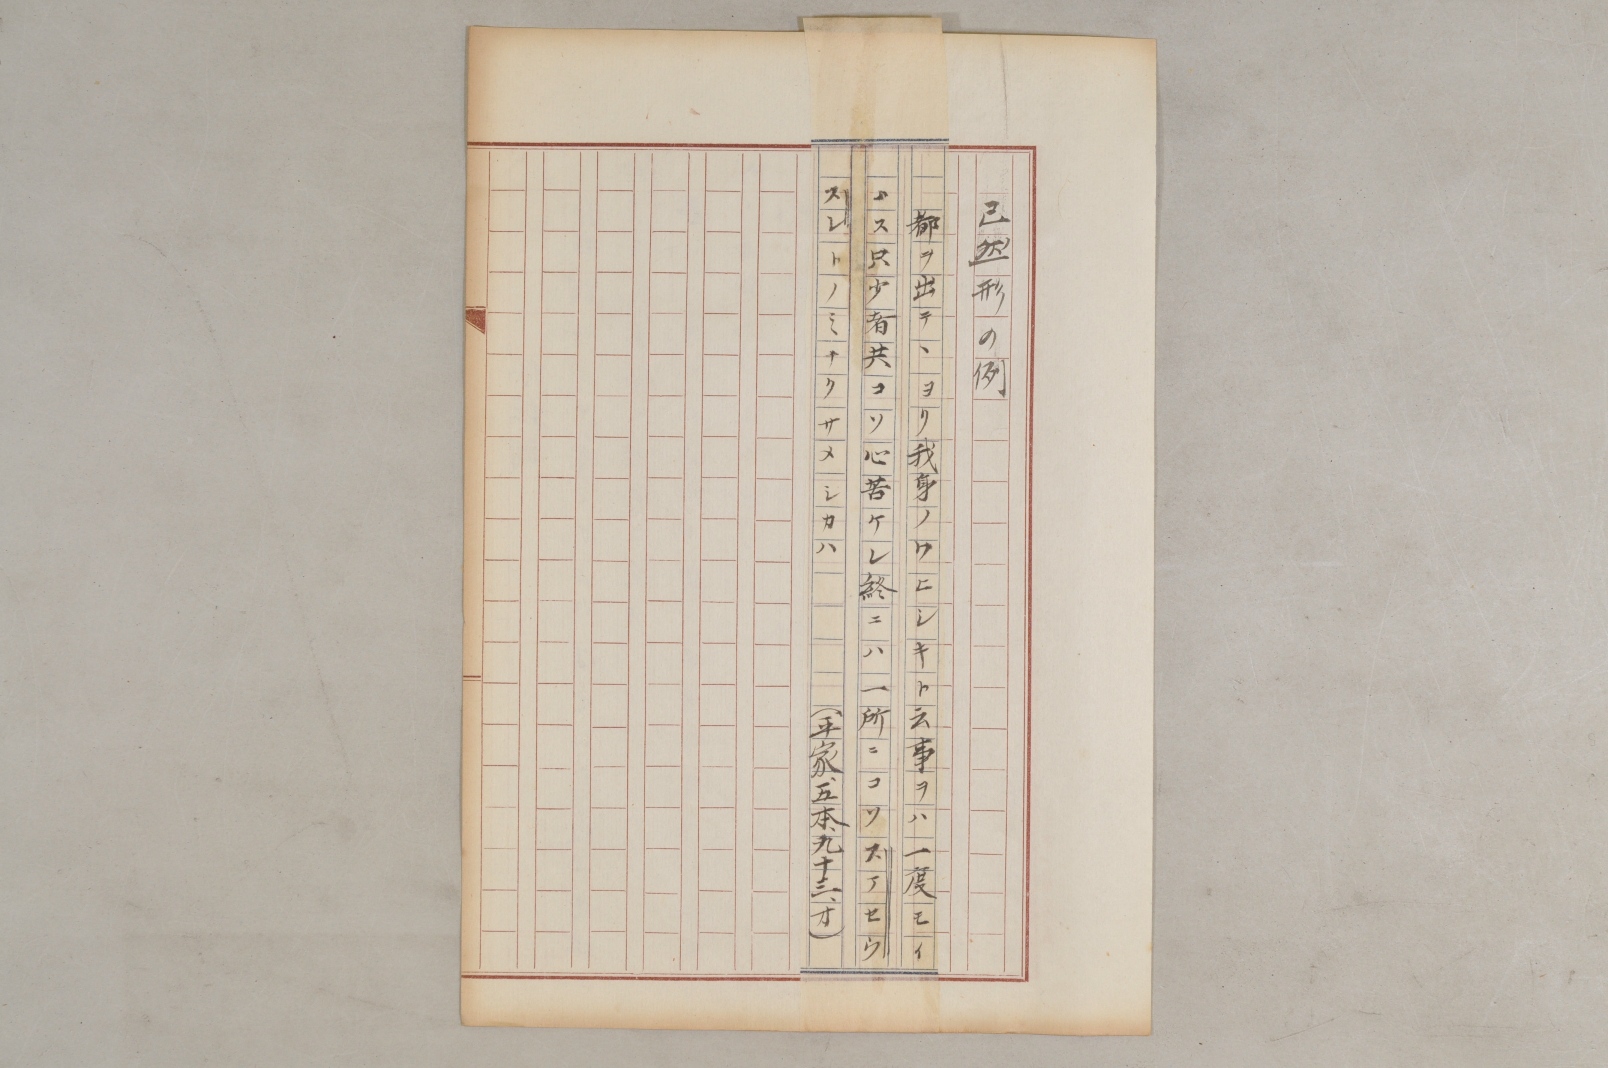 已然形の例
都ヲ出テヽヨリ我身ノワヒシキト云事ヲハ一度モイ
ハス只少者共コソ心苦ケレ終ニハ一所ニコソスアセウ
スレトノミナクサメシカハ
(平家、五本、九十三、オ)